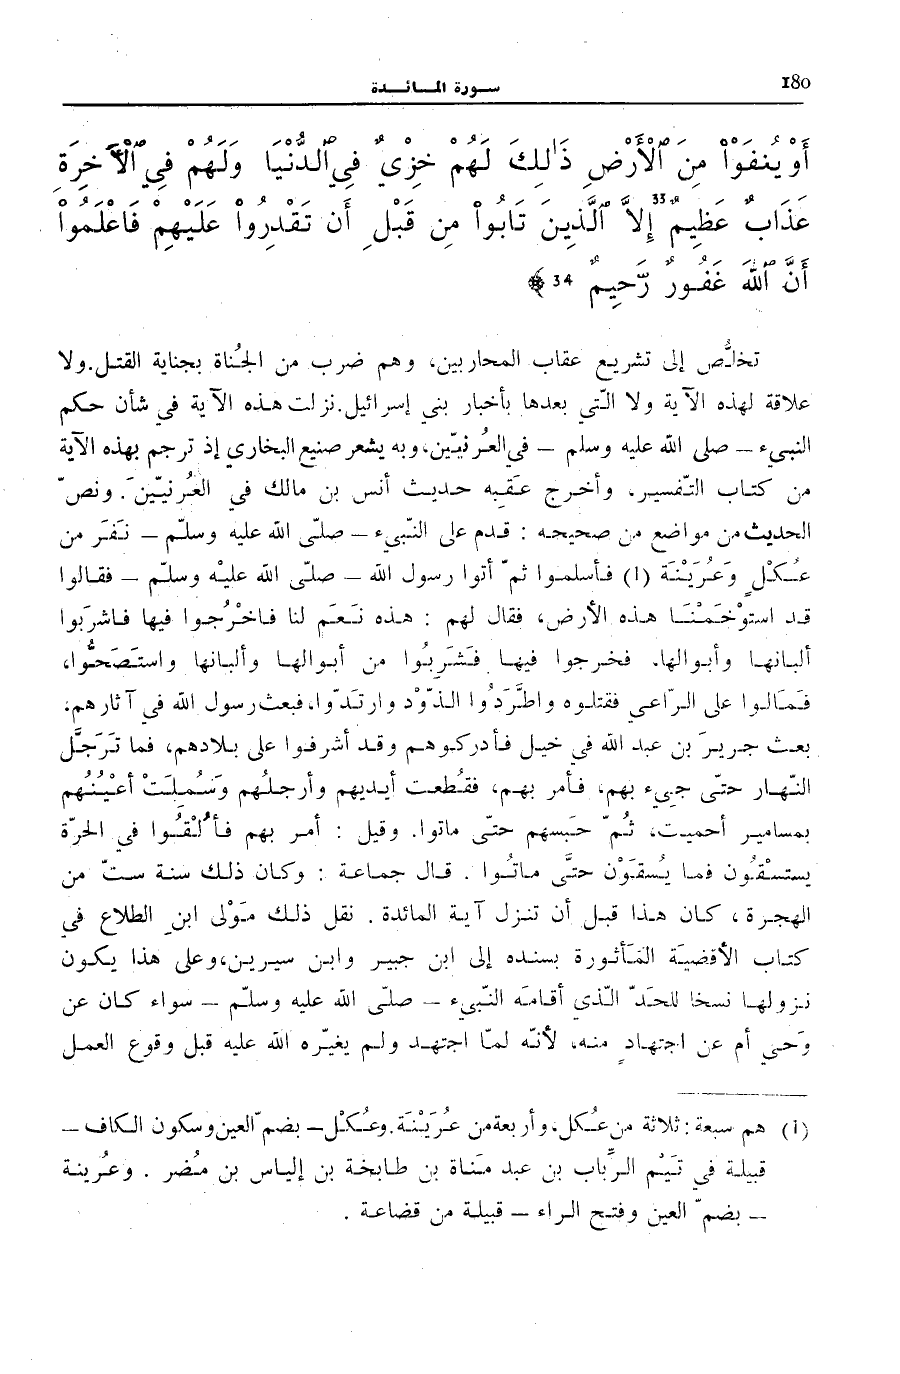 180
سورة المائدة
أَوْ يُنفَوْاْ مِنَ ٱلْأَرْضِ ذَٰلِكَ لَهُمْ خِزْيٌ فِي ٱلدُّنْيَا وَلَهُمْ فِي ٱلْأَخِرَةِ
عَذَابٌ عَظِيمٌ 33 إِلاَّ ٱلَّذِينَ تَابُواْ مِن قَبْلِ أَن تَقْدِرُواْ عَلَيْهِمْ فَاعْلَمُواْ
أَنَّ ٱللَّهَ غَفُورٌ رَّحِيمٌ 34 ﴾
تخلُّص إلى تشريع عقاب المحاربين، وهم ضرب من الجُناة بجناية القتل. ولا
علاقة لهذه الآية ولا الّتي بعدها بأخبار بني إسرائيل. نزلت هذه الآية في شأن حكم
النبيء – صلى الله عليه وسلم – في العُرنيّين، وبه يشعر صنيع البخاري إذ ترجم بهذه الآية
من كتاب التّفسير، وأخرج عقبه حديث أنس بن مالك في العُرنيّين. ونصّ
الحديث من مواضع من صحيحه : قدم على النّبيء – صلّى الله عليه وسلّم – نَفَر من
عُكْلٍ وعُرَيْنَة (1) فأسلموا ثمّ أتوا رسول الله – صلّى الله عليْه وسلّم – فقالوا
قد استوْخَمْنَا هذه الأرض، فقال لهم : هذه نَعَم لنا فاخْرُجوا فيها فاشربَوا
ألبانها وأبوالها. فخرجوا فيها فَشَرِبُوا من أبوالها وألبانها واستَصَحُّوا،
فَمَالوا على الرّاعي فقتلوه واطَّرَدُوا الذّوْد وارتَدّوا، فبعث رسول الله في آثارهم،
بعث جريرَ بن عبد الله في خيل فأدركوهم وقد أشرفوا على بلادهم، فما تَرَجَّل
النّهار حتّى جيء بهم، فأمر بهم، فقُطعت أيديهم وأرجلُهم وسُملتْ أعْيُنُهم
بمسامير أحميت، ثُمّ حَبَسهم حتّى ماتوا. وقيل : أمر بهم فأُلْقُوا في الحرّة
يستسْقُون فما يُسقَوْن حتَّى ماتُوا . قال جماعة : وكان ذلك سنة ستّ من
الهجرة ، كان هذا قبل أن تنزل آية المائدة . نقل ذلك مَوْلى ابن الطلاع في
كتاب الأقضيَة المَأثورة بسنده إلى ابن جبير وابن سيرين، وعلى هذا يكون
نزولها نسخا للحَدّ الّذي أقامَه النّبيء – صلّى الله عليه وسلّم – سواء كان عن
وَحي أم عن اجتهادٍ منه، لأنّه لمّا اجتهد ولم يغيّره الله عليه قبل وقوع العمل
(1) هم سبعة : ثلاثة من عُكل، وأربعة من عُرَيْنَة. وعُكْل – بضمّ العين وسكون الكاف –
قبيلة في تَيْم الرِّباب بن عبد مَناة بن طابخة بن إلياس بن مُضر . وعُرينة
– بضمّ العين وفتح الراء – قبيلة من قضاعة .